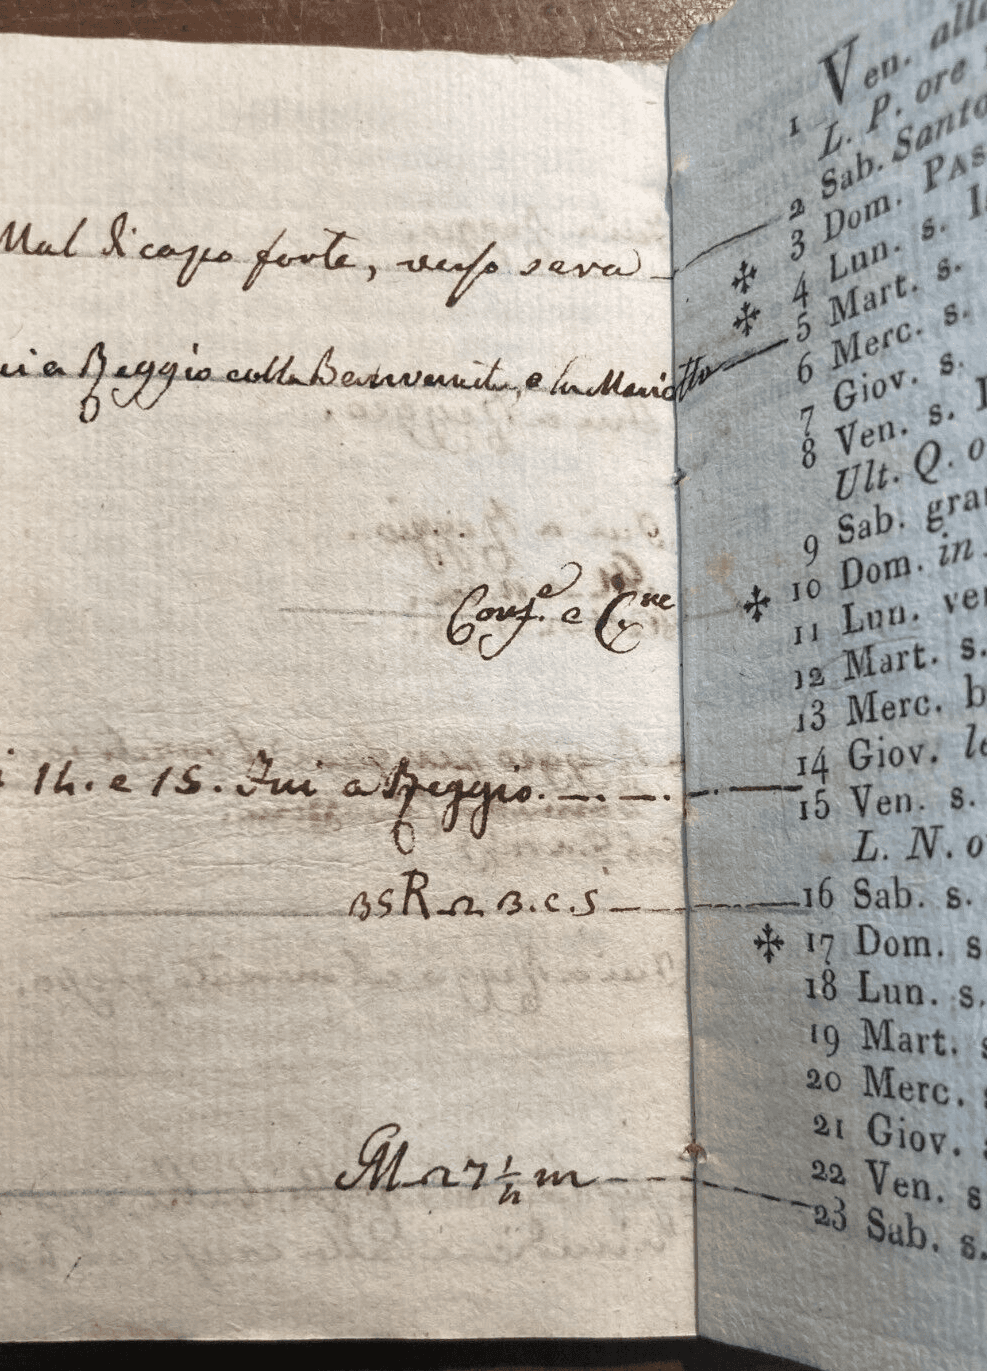 Mal di capo forte, verso sera
a Reggio colla Benvenuti, e la Mariotto
Conf.e e C.ne
14. e 15. Fui a Reggio. — . — .
BSR B.C.S
1 Ven. alla
L. P. ore
2 Sab. Santo
3 Dom. PAS
4 Lun. s. I
5 Mart. s.
6 Merc. s.
7 Giov. s.
8 Ven. s.
Ult. Q. o
9 Sab. gra
10 Dom. in
11 Lun. ve
12 Mart. s.
13 Merc. b
14 Giov. le
15 Ven. s.
L. N. o
16 Sab. s.
17 Dom. s
18 Lun. s.
19 Mart. s
20 Merc. s
21 Giov. s
22 Ven. s
23 Sab. s.